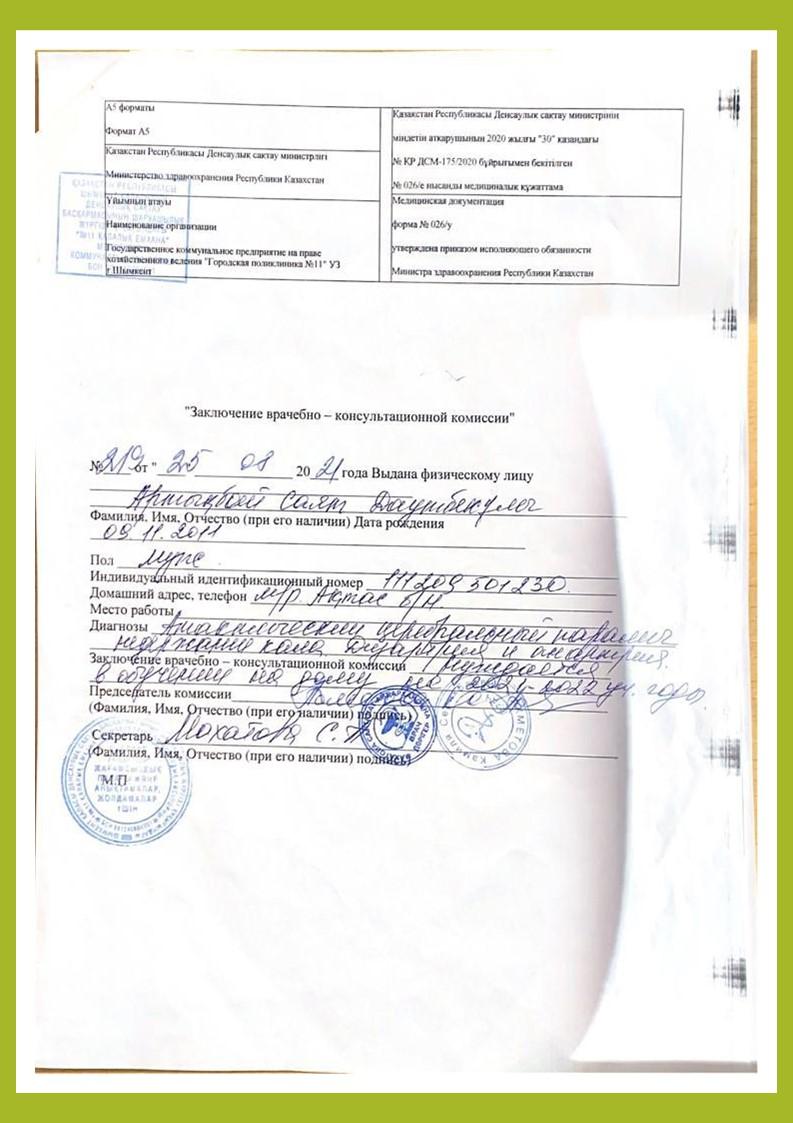 А5 форматы
Формат А5
Қазақстан Республикасы Денсаулық сақтау министрлігі
Министерство здравоохранения Республики Казахстан
Ұйымның атауы
Наименование организации
Государственное коммунальное предприятие на праве
хозяйственного ведения "Городская поликлиника №11" УЗ
г.Шымкент
Қазақстан Республикасы Денсаулық сақтау министрінің
міндетін атқарушының 2020 жылғы "30" қазандағы
№ ҚР ДСМ-175/2020 бұйрығымен бекітілген
№ 026/е нысанды медициналық құжаттама
Медицинская документация
форма № 026/у
утверждена приказом исполняющего обязанности
Министра здравоохранения Республики Казахстан
"Заключение врачебно – консультационной комиссии"
№ 219 от " 25 08 20 21 года Выдана физическому лицу
Артықбай Саят Дәуітбекұлы
Фамилия, Имя, Отчество (при его наличии) Дата рождения
09.11.2011
Пол муж.
Индивидуальный идентификационный номер 111209501230.
Домашний адрес, телефон м/р. Ақтас б/н.
Место работы
Диагнозы Атактический церебральный паралич
недержание кала дизартрия и анартрия.
Заключение врачебно – консультационной комиссии нуждается
в обучении на дому на 2021-2022 уч. годы.
Председатель комиссии
(Фамилия, Имя, Отчество (при его наличии) подпись)
Секретарь Махатова С.
(Фамилия, Имя, Отчество (при его наличии) подпись)
М.П
ЖАРАМСЫЗДЫҚ
АНЫҚТАМАЛАР,
ЖОЛДАМАЛАР
ҮШІН